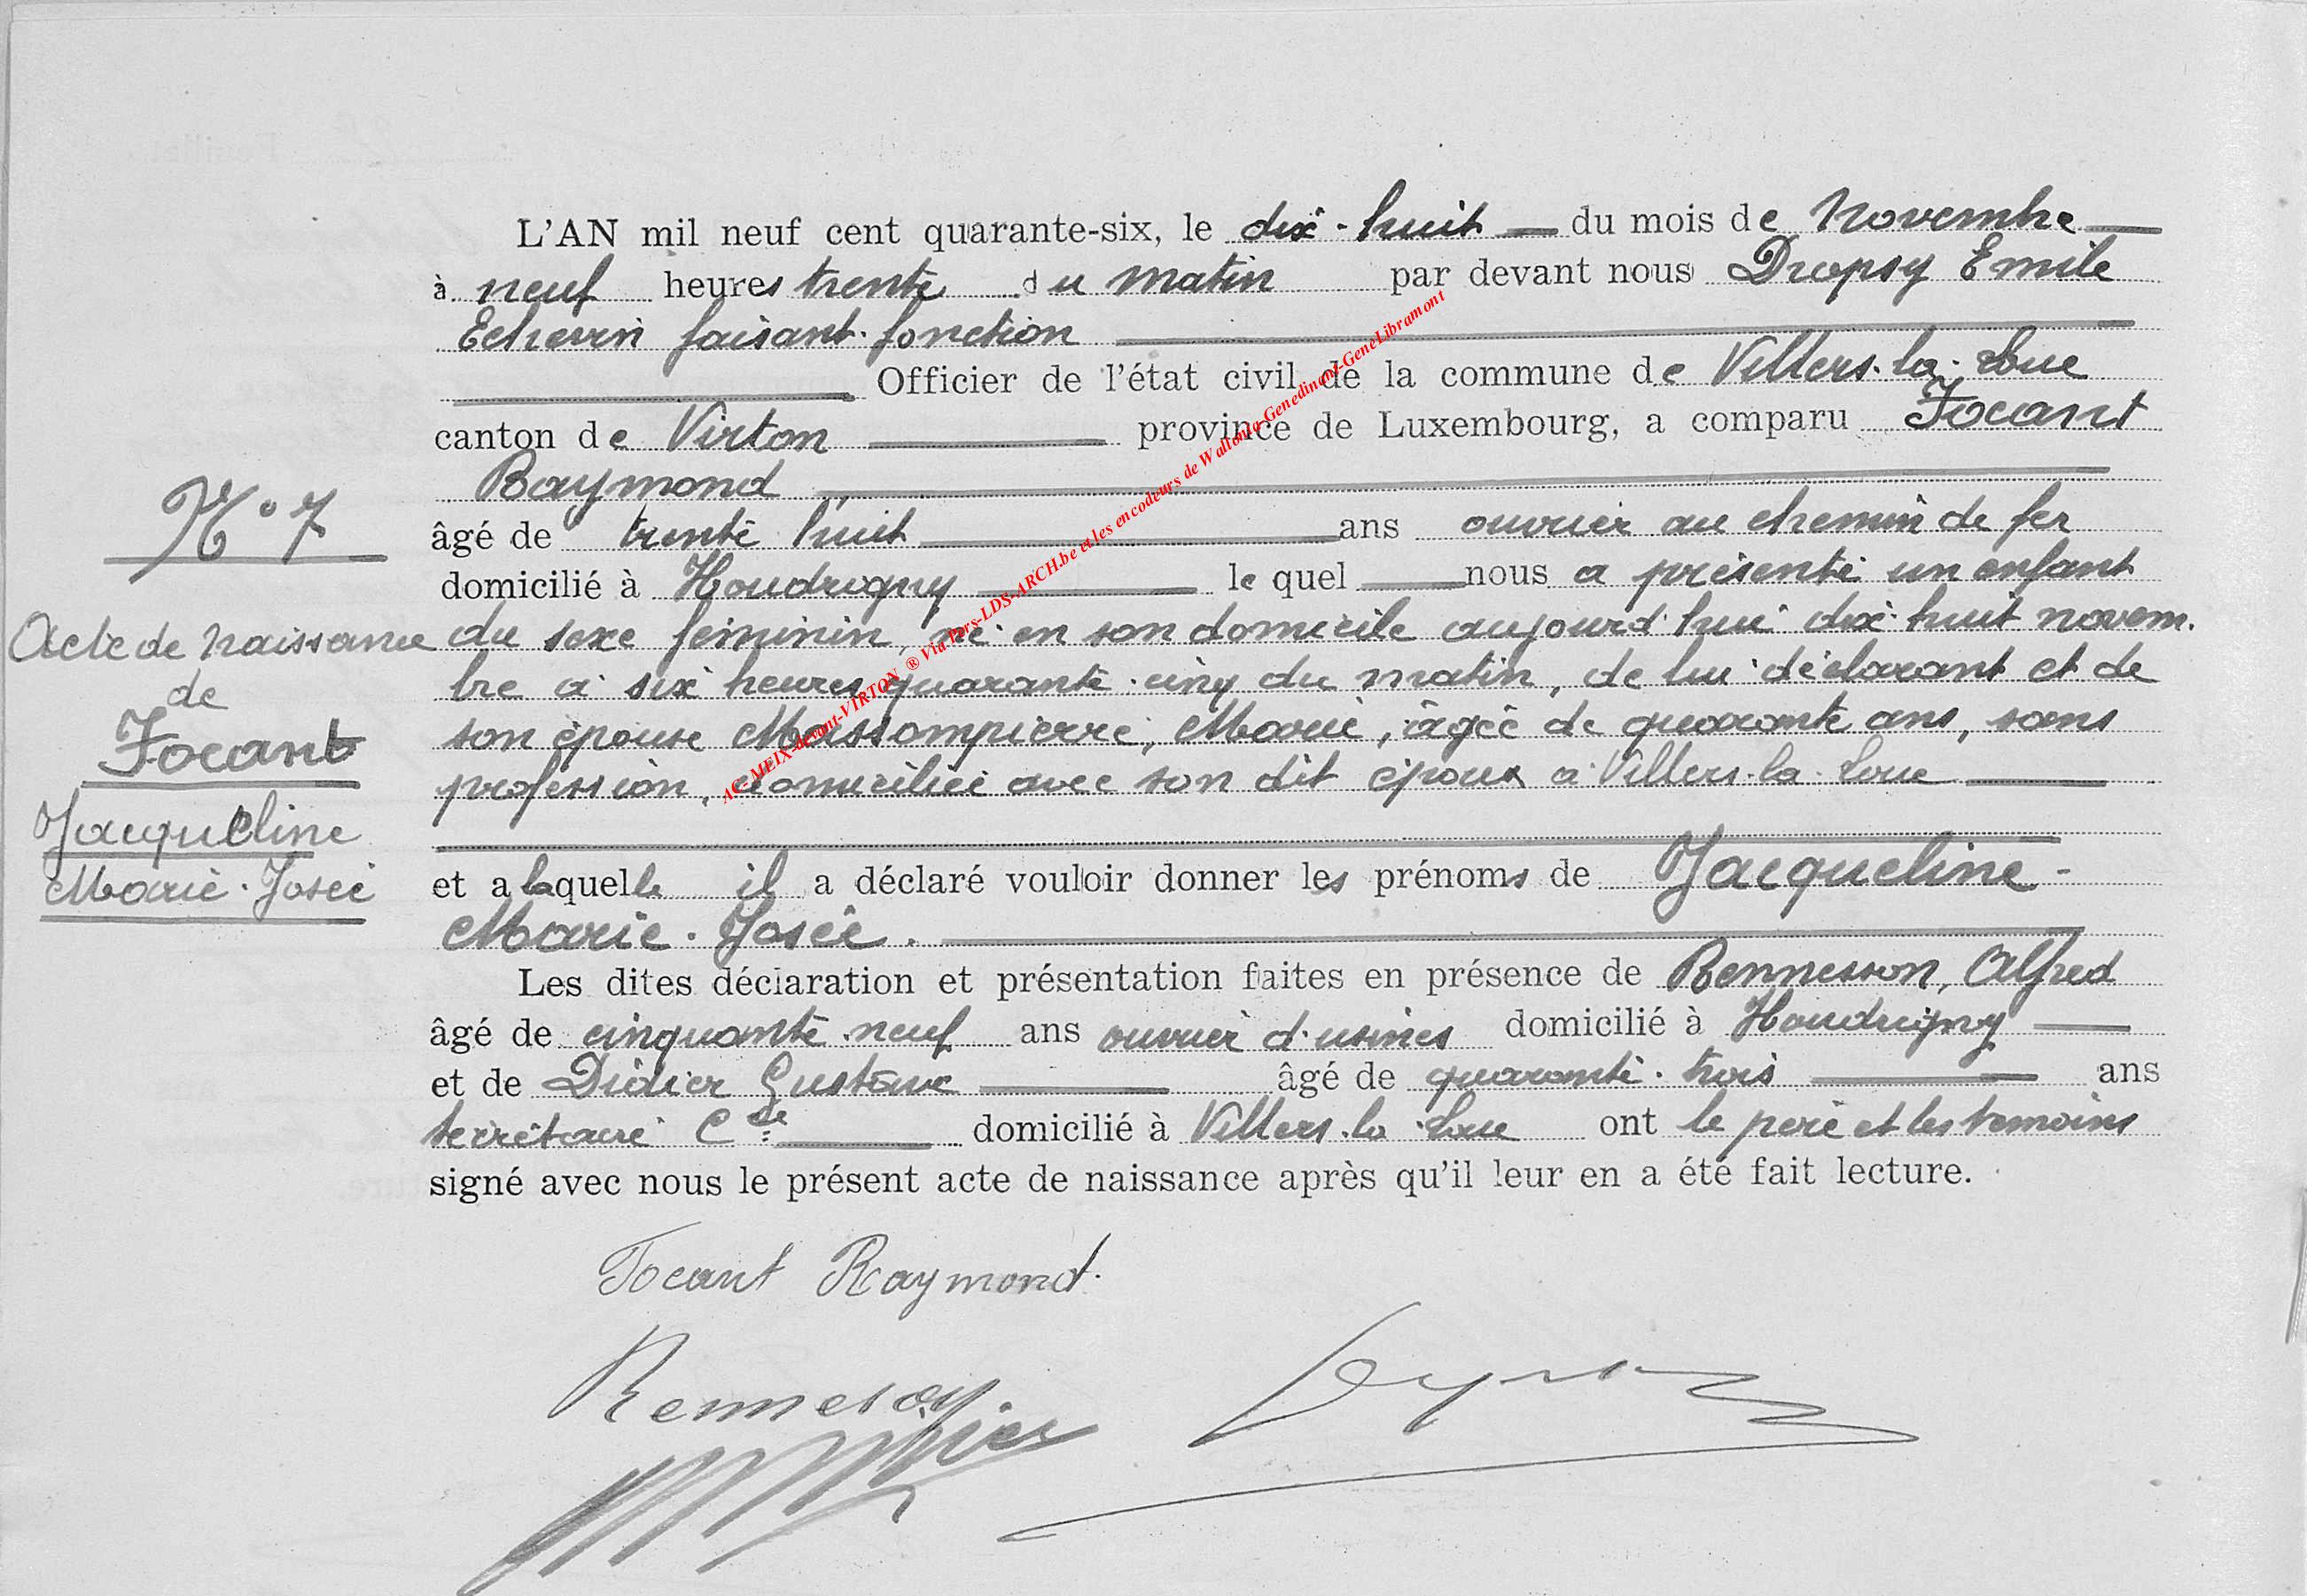 L'AN mil neuf cent quarante-six, le dix-huit du mois de Novembre
à neuf heures trente du matin par devant nous Dropsy Emile
Echevin faisant fonction
Officier de l'état civil de la commune de Villers-la-Loue
canton de Virton province de Luxembourg, a comparu Focant
Raymond
âgé de trente huit ans ouvrier au chemin de fer
domicilié à Houdrigny lequel nous a présenté un enfant
du sexe féminin, né en son domicile aujourd'hui dix-huit novem-
bre à six heures quarante-cinq du matin, de lui déclarant et de
son épouse Massompierre, Marie, âgée de quarante ans, sans
profession, domiciliée avec son dit époux à Villers-la-Loue
et a laquelle il a déclaré vouloir donner les prénoms de Jacqueline-
Marie-Josée.
Les dites déclaration et présentation faites en présence de Rennesson, Alfred
âgé de cinquante-neuf ans ouvrier d'usines domicilié à Houdrigny
et de Didier Gustave âgé de quarante-trois ans
secrétaire Cal domicilié à Villers-la-Loue ont le père et les témoins
signé avec nous le présent acte de naissance après qu'il leur en a été fait lecture.
N° 7
Acte de Naissance
de
Focant
Jacqueline
Marie-Josée
Focant Raymond.
Rennesson
AC-MEIX-devant-VIRTON ® Via Pers-LDS-ARCH.be et les encodeurs de Wallonia-Genedinant-GeneLibramont